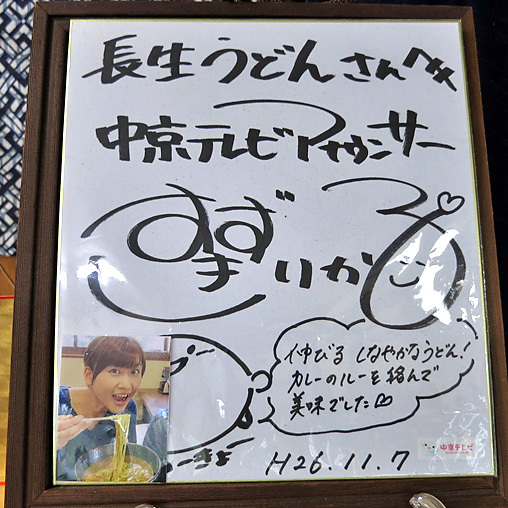 長生うどんさんへ
中京テレビアナウンサー
すずまいか
伸びる しなやかなうどん!
カレーのルーを絡んで
美味でした
中京テレビ
H26.11.7